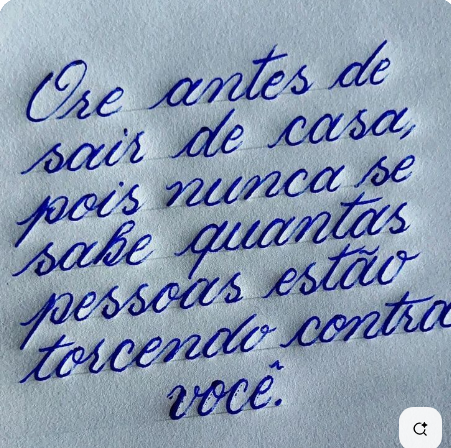 Ore antes de
sair de casa,
pois nunca se
sabe quantas
pessoas estão
torcendo contra
você.